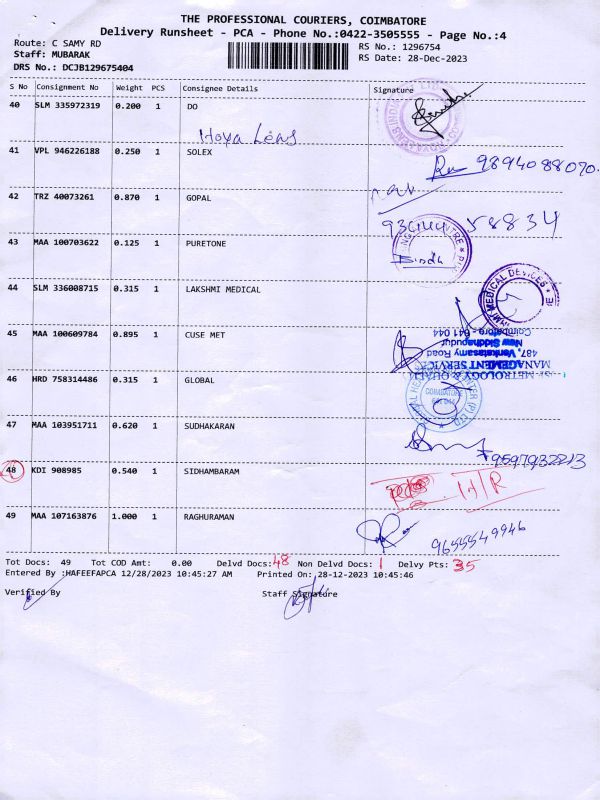 THE PROFESSIONAL COURIERS, COIMBATORE
Delivery Runsheet - PCA - Phone No.:0422-3505555 - Page No.:4
Route: C SAMY RD
Staff: MUBARAK
DRS No.: DCJB129675404
RS No.: 1296754
RS Date: 28-Dec-2023
S No Consignment No Weight PCS Consignee Details Signature
40 SLM 335972319 0.200 1 DO
Hoya Lens
41 VPL 946226188 0.250 1 SOLEX
9894088070.
42 TRZ 40073261 0.870 1 GOPAL
58834
43 MAA 100703622 0.125 1 PURETONE
Bindu
44 SLM 336008715 0.315 1 LAKSHMI MEDICAL
MEDICAL DEVICES
45 MAA 100609784 0.895 1 CUSE MET
METROLOGY & QUALI
MANAGEMENT SERVICES
487, Venkatasamy Road
New Siddhapudur
Coimbatore - 641 044
46 HRD 758314486 0.315 1 GLOBAL
COIMBATORE
47 MAA 103951711 0.620 1 SUDHAKARAN
9597932213
48 KDI 908985 0.540 1 SIDHAMBARAM
49 MAA 107163876 1.000 1 RAGHURAMAN
9655549946
Tot Docs: 49 Tot COD Amt: 0.00 Delvd Docs: 48 Non Delvd Docs: 1 Delvy Pts: 35
Entered By :HAFEEFAPCA 12/28/2023 10:45:27 AM Printed On: 28-12-2023 10:45:46
Verified By Staff Signature